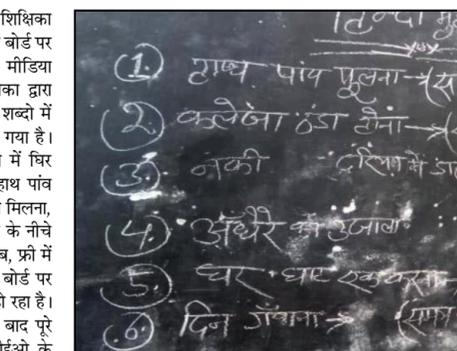 शिक्षिका
बोर्ड पर
मीडिया
का द्वारा
शब्दो में
गया है।
में घिर
हाथ पांव
मिलना,
के नीचे
ब, फ्री में
बोर्ड पर
हो रहा है।
बाद पूरे
ईओ के
हिन्दी मु
1. हाथ पांव फूलना→(
2. कलेजा ठंडा होना→(
3. नकी
4. अंधेरे का उजाला
5. घर घाट एक करना→
6. दिन गँवाना→(समय